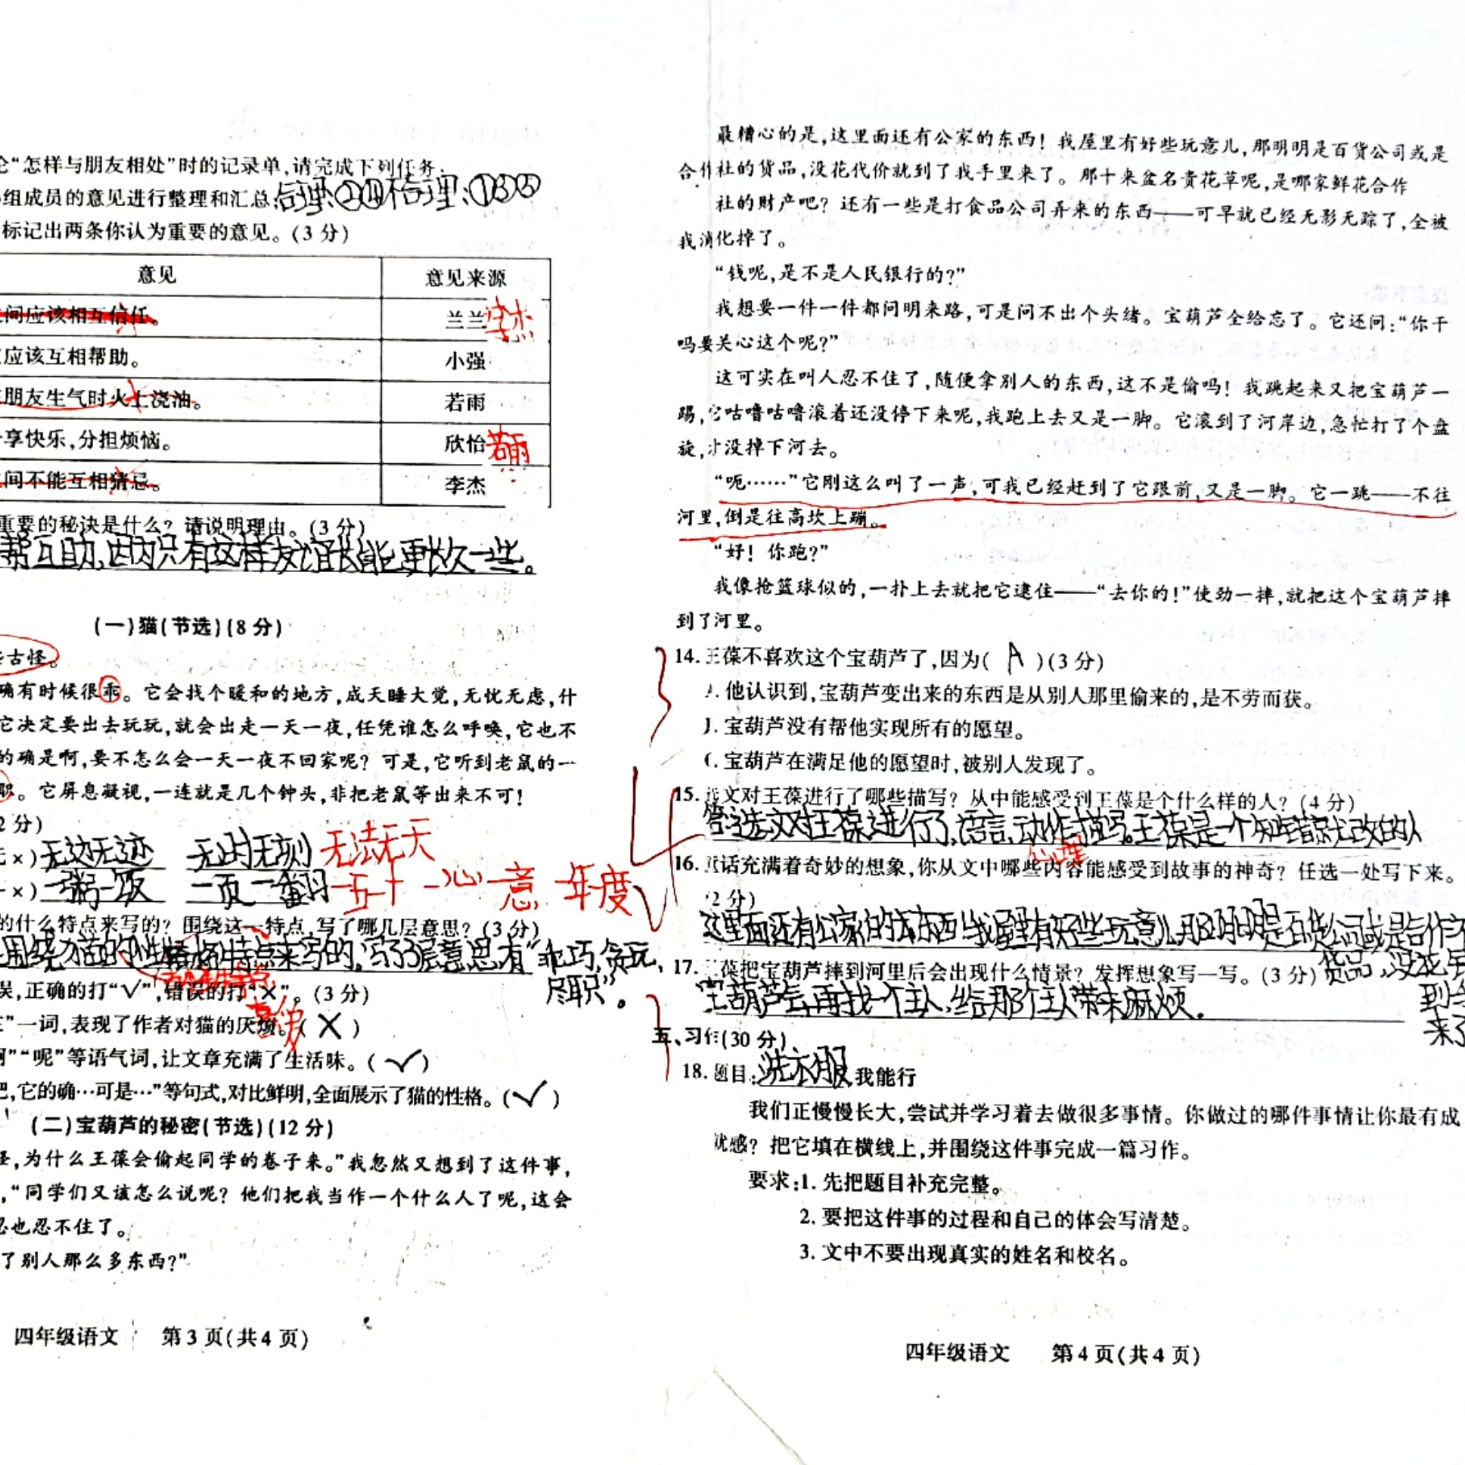 “怎样与朋友相处”时的记录单,请完成下列任务。
组成员的意见进行整理和汇总:合理:②④不合理:①③⑤
标记出两条你认为重要的意见。(3分)
意见 意见来源
间应该相互信任。 兰兰 李杰
应该互相帮助。 小强
朋友生气时火上浇油。 若雨
享快乐,分担烦恼。 欣怡 若雨
间不能互相猜忌。 李杰
重要的秘诀是什么?请说明理由。(3分)
帮互助,因为只有这样友谊才能更长久一些。
(一)猫(节选)(8分)
古怪。
确有时候很乖。它会找个暖和的地方,成天睡大觉,无忧无虑,什
它决定要出去玩玩,就会出走一天一夜,任凭谁怎么呼唤,它也不
的确是啊,要不怎么会一天一夜不回家呢?可是,它听到老鼠的一
职。它屏息凝视,一连就是几个钟头,非把老鼠等出来不可!
2分)
×)无边无迹 无时无刻 无法无天
×)一粥一饭 一页一翻 一五一十 一心一意 一年一度
的什么特点来写的?围绕这一特点,写了哪几层意思?(3分)
围绕为猫的性格特点来写的,写了3层意思有“乖巧,贪玩,
尽职”。
误,正确的打“✓”,错误的打“×”。(3分)
”一词,表现了作者对猫的厌烦。(×)
啊”“呢”等语气词,让文章充满了生活味。(✓)
吧,它的确…可是…”等句式,对比鲜明,全面展示了猫的性格。(✓)
(二)宝葫芦的秘密(节选)(12分)
怪,为什么王葆会偷起同学的卷子来。”我忽然又想到了这件事,
,“同学们又该怎么说呢?他们把我当作一个什么人了呢,这会
忍也忍不住了。
了别人那么多东西?”
四年级语文 第3页(共4页)
最糟心的是,这里面还有公家的东西!我屋里有好些玩意儿,那明明是百货公司或是
合作社的货品,没花代价就到了我手里来了。那十来盆名贵花草呢,是哪家鲜花合作
社的财产吧?还有一些是打食品公司弄来的东西——可早就已经无影无踪了,全被
我消化掉了。
“钱呢,是不是人民银行的?”
我想要一件一件都问明来路,可是问不出个头绪。宝葫芦全给忘了。它还问:“你干
吗要关心这个呢?”
这可实在叫人忍不住了,随便拿别人的东西,这不是偷吗!我跳起来又把宝葫芦一
踢,它咕噜咕噜滚着还没停下来呢,我跑上去又是一脚。它滚到了河岸边,急忙打了个盘
旋,才没掉下河去。
“呃……”它刚这么叫了一声,可我已经赶到了它跟前,又是一脚。它一跳——不往
河里,倒是往高坎上蹦。
“好!你跑?”
我像抢篮球似的,一扑上去就把它逮住——“去你的!”使劲一摔,就把这个宝葫芦摔
到了河里。
14.王葆不喜欢这个宝葫芦了,因为( A )(3分)
A.他认识到,宝葫芦变出来的东西是从别人那里偷来的,是不劳而获。
B.宝葫芦没有帮他实现所有的愿望。
C.宝葫芦在满足他的愿望时,被别人发现了。
15.选文对王葆进行了哪些描写?从中能感受到王葆是个什么样的人?(4分)
答:选文对王葆进行了,语言,动作描写。王葆是一个知错就改的人
心理
16.童话充满着奇妙的想象,你从文中哪些内容能感受到故事的神奇?任选一处写下来。
(2分)
这里面还有公家的东西!我屋里有好些玩意儿,那明明是百货公司或是合作
货品,没花
到
来了
17.王葆把宝葫芦摔到河里后会出现什么情景?发挥想象写一写。(3分)
宝葫芦会再找一个主人,给那个主人带来麻烦。
五、习作(30分)
18.题目:洗衣服,我能行
我们正慢慢长大,尝试并学习着去做很多事情。你做过的哪件事情让你最有成
就感?把它填在横线上,并围绕这件事完成一篇习作。
要求:1.先把题目补充完整。
2.要把这件事的过程和自己的体会写清楚。
3.文中不要出现真实的姓名和校名。
四年级语文 第4页(共4页)